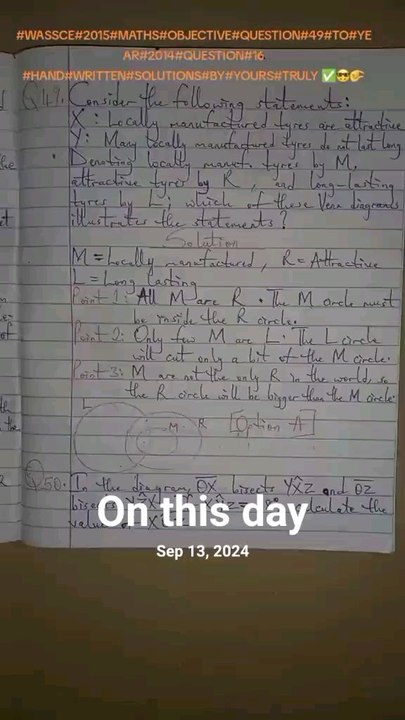 #WASSCE#2015#MATHS#OBJECTIVE#QUESTION#49#TO#YE
AR#2014#QUESTION#16
#HAND#WRITTEN#SOLUTIONS#BY#YOURS#TRULY ✅😎💪
Q49. Consider the following statements:
X: Locally manufactured tyres are attractive
Y: Many locally manufactured tyres do not last long
Denoting locally manufn. tyres by M,
attractive tyres by R, and long-lasting
tyres by L; which of these Venn diagrams
illustrates the statements?
Solution
M = Locally manufactured, R = Attractive
L = Long lasting
Point 1: All M are R. The M circle must
be inside the R circle.
Point 2: Only few M are L. The L circle
will cut only a bit of the M circle.
Point 3: M are not the only R in the world, so
the R circle will be bigger than the M circle
L
M R Option A
Q50. In the diagram, OX bisects YX̂Z and OZ
On this day
calculate the
Sep 13, 2024